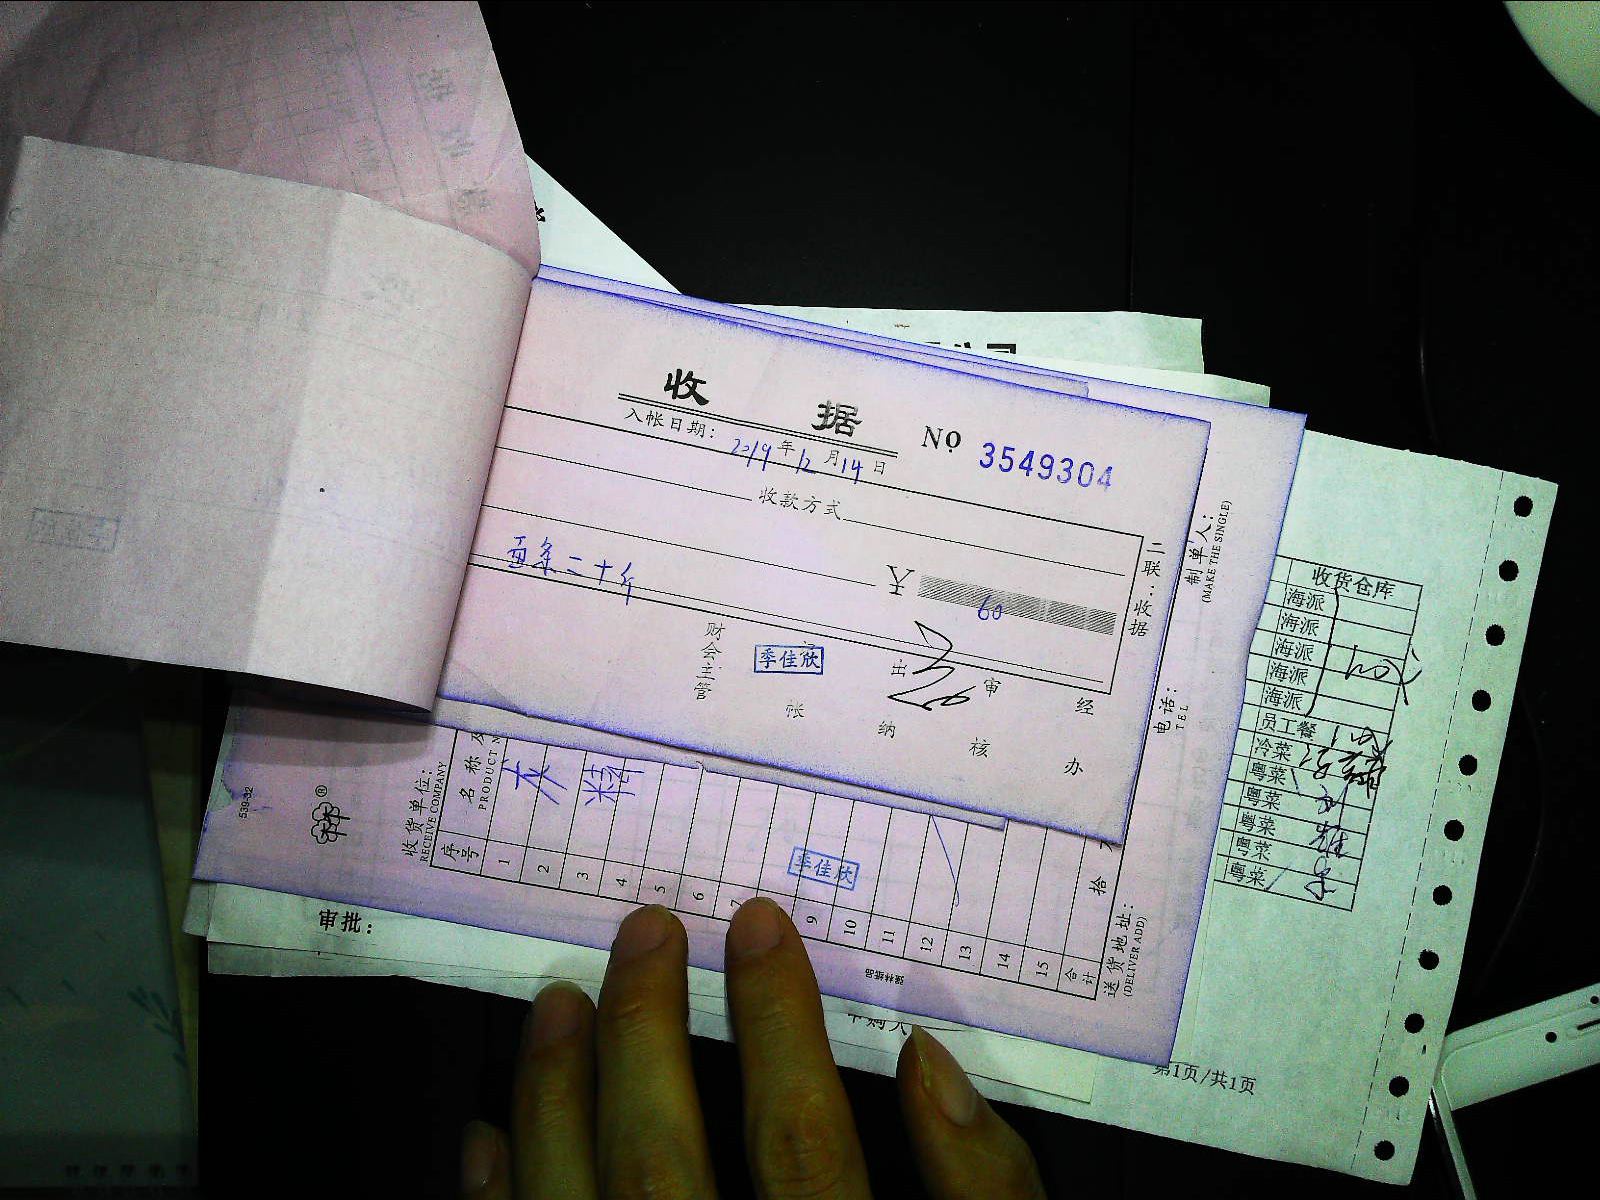 收 据
NO 3549304
入帐日期: 2019 年 12 月 14 日
收款方式
¥ 60
面条二十斤
二联:收据
财会主管
记帐
出纳
审核
经办
季佳欣
制单人:
(MAKE THE SINGLE)
电话:
TEL
送货地址:
(DELIVER ADD)
收货单位:
RECEIVE COMPANY
序号
名称及
PRODUCT N
1
2
3
4
5
6
7
9
10
11
12
13
14
15
合计
拾
季佳欣
539-32
®
强林纸品
收货仓库
海派
海派
海派
海派
海派
员工餐
冷菜
粤菜
粤菜
粤菜
粤菜
粤菜
审批:
申购人
第1页/共1页